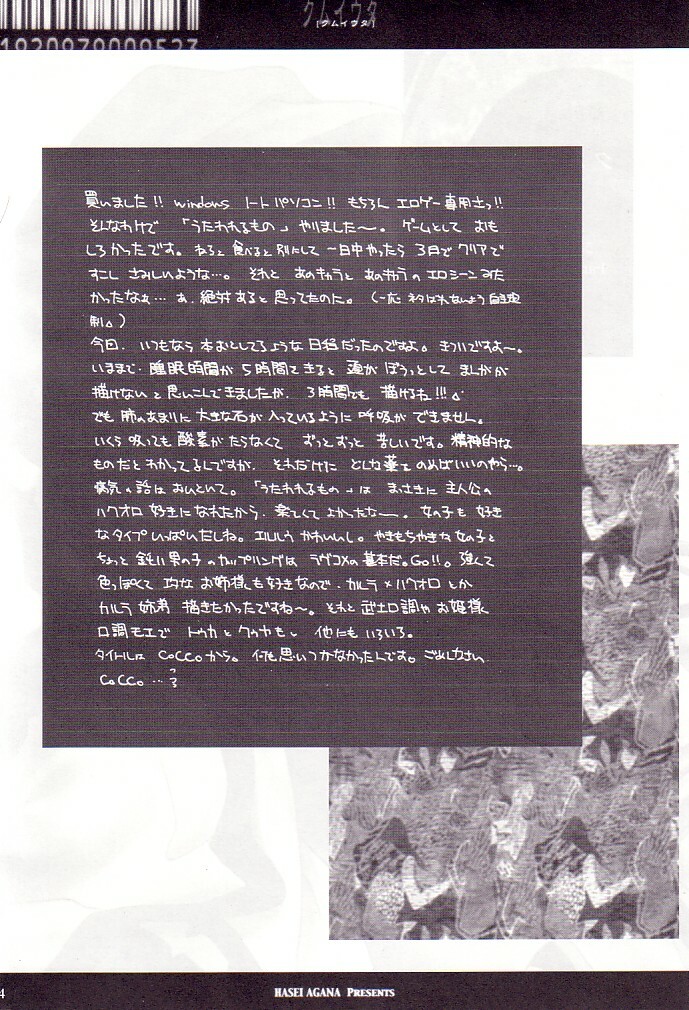 クムイウタ
[クムイウタ]
1920979009523
買いました!! windows ノートパソコン!! もちろん エロゲー専用士っ!!
そんなわけで 「うたわれるもの」 やりました～。 ゲームとして おも
しろかったです。 ねると 食べると 別にして 一日中やったら 3日で クリアで
すこし さみしいような…。 それと あのキャラと あのキャラの エロシーン みた
かったなぁ… あ、絶対あると思ってたのに。 (一応 ネタばれしないよう 自主規
制。)
今回、いつもなら 本おとしてるような 日程だったのですよ。 きついですよ～。
いままで、睡眠時間が 5時間できると 頭が ぼうっとして まんがが
描けない と 思いこんできましたが、 3時間でも 描けるね!!!
でも 肺のあたりに 大きな石が 入っているように 呼吸が できません。
いくら 吸っても 酸素が たらなくて ずっとずっと 苦しいです。 精神的な
ものだと わかってるんですが、 それだけに どんな薬を のめばいいのやら…。
病気の話は おいといて。 「うたわれるもの」は まっさきに 主人公の
ハクオロ 好きに なれたから、 楽しくて よかったなー。 女の子も 好き
なタイプ いっぱいだしね。 エルルゥ かわいいし。 やきもちやきな 女の子と
ちょっと 鈍い 男の子 のカップリングは ラヴコメの 基本だ。Go!!。 強くて
色っぽくて 巧な お姉様も好きなので、 カルラ×ハクオロ とか
カルラ 姉様 描きたかったですね～。 それと 武士口調や お姫様
口調モエで トウカと クーヤも。 他にも いろいろ。
タイトルは COCCOから。 何も思いつかなかったんです。 ごめんなさい
COCCO …
4
HASEI AGANA PRESENTS